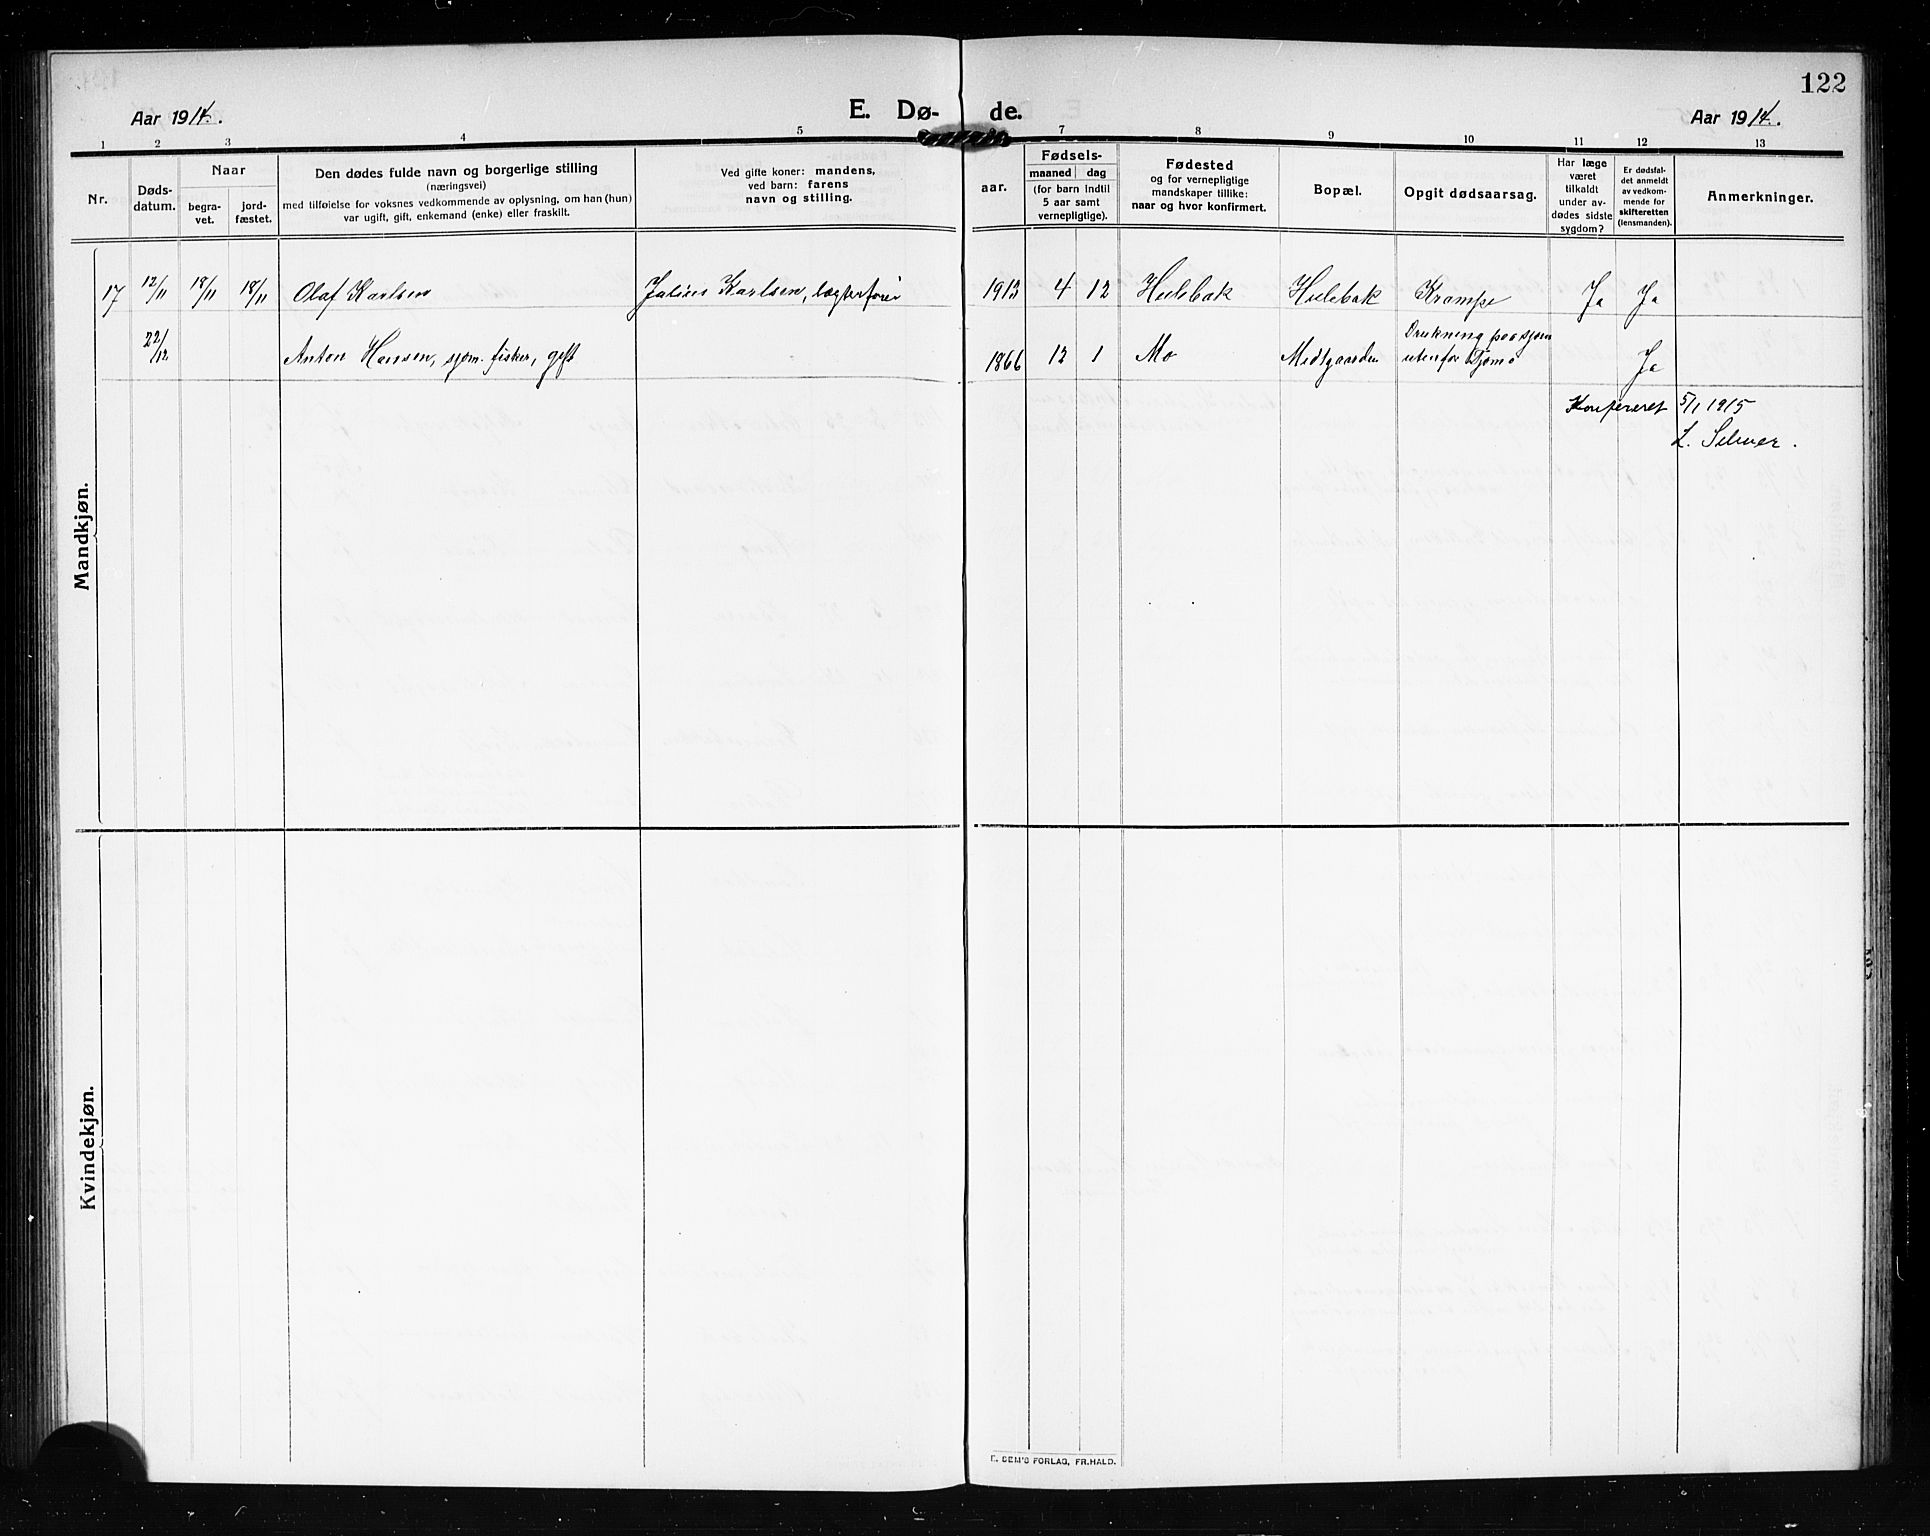 122
Aar 1914.
E. Dø-
de.
Aar 1914.
1 2 3 4 5 7 8 9 10 11 12 13
Nr.
Døds-
datum.
Naar
begra-
vet.
jord-
fæstet.
Den dødes fulde navn og borgerlige stilling
(næringsvei)
med tilføielse for voksnes vedkommende av oplysning, om han (hun)
var ugift, gift, enkemand (enke) eller fraskilt.
Ved gifte koner: mandens,
ved barn: farens
navn og stilling.
Fødsels-
aar.
maaned dag
(for barn indtil
5 aar samt
vernepligtige).
Fødested
og for vernepligtige
mandskaper tillike:
naar og hvor konfirmert.
Bopæl.
Opgit dødsaarsag.
Har læge
været
tilkaldt
under av-
dødes sidste
sygdom?
Er dødsfal-
det anmeldt
av vedkom-
mende for
skifteretten
(lensmanden).
Anmerkninger.
Mandkjøn.
17 12/11 18/11 18/11 Olaf Karlsen Julius Karlsen, 1913 4 12 Hulebak Hulebak Krampe Ja Ja
22/12 Anton Hansen, sjøm. fisker, gift 1866 12 1 Mo Medtgaarden Drukning paa sjøen
utenfor Tjømø Ja
Konfereret 5/1 1915
Kvindekjøn.
E. SEM'S FORLAG, FR.HALD.